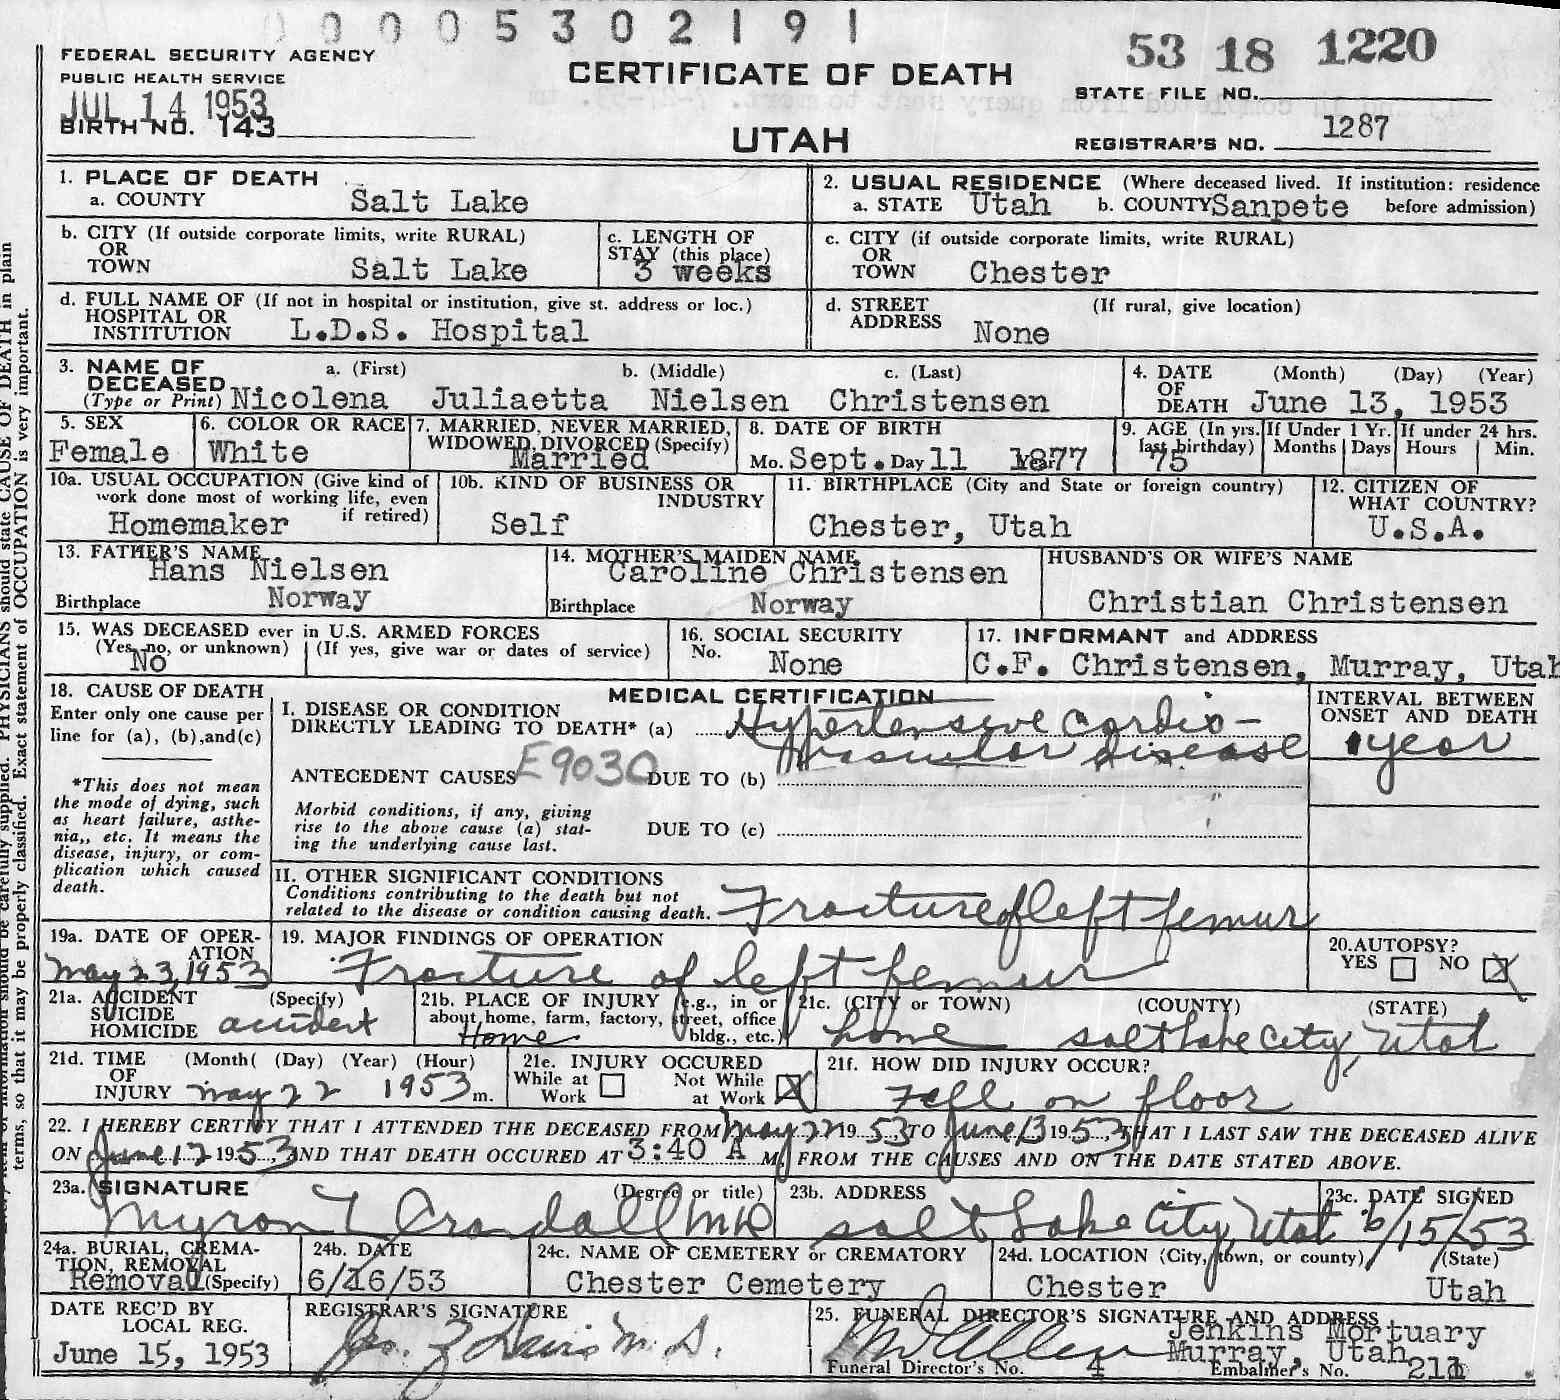 0005302191
FEDERAL SECURITY AGENCY
PUBLIC HEALTH SERVICE
JUL 14 1953
BIRTH NO. 143
CERTIFICATE OF DEATH
UTAH
53 18 1220
STATE FILE NO.
REGISTRAR'S NO. 1287
1. PLACE OF DEATH
a. COUNTY Salt Lake
2. USUAL RESIDENCE (Where deceased lived. If institution: residence before admission)
a. STATE Utah b. COUNTY Sanpete
b. CITY (If outside corporate limits, write RURAL)
OR
TOWN Salt Lake
c. LENGTH OF
STAY (this place)
3 weeks
c. CITY (if outside corporate limits, write RURAL)
OR
TOWN Chester
d. FULL NAME OF (If not in hospital or institution, give st. address or loc.)
HOSPITAL OR
INSTITUTION L.D.S. Hospital
d. STREET (If rural, give location)
ADDRESS None
3. NAME OF a. (First) b. (Middle) c. (Last)
DECEASED
(Type or Print) Nicolena Juliaetta Nielsen Christensen
4. DATE (Month) (Day) (Year)
OF
DEATH June 13, 1953
5. SEX
Female
6. COLOR OR RACE
White
7. MARRIED, NEVER MARRIED,
WIDOWED, DIVORCED (Specify)
Married
8. DATE OF BIRTH
Mo. Sept. Day 11 Year 1877
9. AGE (In yrs. last birthday)
75
If Under 1 Yr.
Months Days
If under 24 hrs.
Hours Min.
10a. USUAL OCCUPATION (Give kind of
work done most of working life, even
if retired)
Homemaker
10b. KIND OF BUSINESS OR
INDUSTRY
Self
11. BIRTHPLACE (City and State or foreign country)
Chester, Utah
12. CITIZEN OF
WHAT COUNTRY?
U.S.A.
13. FATHER'S NAME
Hans Nielsen
Birthplace Norway
14. MOTHER'S MAIDEN NAME
Caroline Christensen
Birthplace Norway
HUSBAND'S OR WIFE'S NAME
Christian Christensen
15. WAS DECEASED ever in U.S. ARMED FORCES
(Yes, no, or unknown) (If yes, give war or dates of service)
No
16. SOCIAL SECURITY
No. None
17. INFORMANT and ADDRESS
C.F. Christensen, Murray, Utah
18. CAUSE OF DEATH
Enter only one cause per
line for (a), (b), and (c)
*This does not mean
the mode of dying, such
as heart failure, asthe-
nia,, etc. It means the
disease, injury, or com-
plication which caused
death.
MEDICAL CERTIFICATION
I. DISEASE OR CONDITION
DIRECTLY LEADING TO DEATH* (a) Hypertensive Cardio-
Vascular disease
ANTECEDENT CAUSES E9030 DUE TO (b)
Morbid conditions, if any, giving
rise to the above cause (a) stat-
ing the underlying cause last.
DUE TO (c)
INTERVAL BETWEEN
ONSET AND DEATH
year
II. OTHER SIGNIFICANT CONDITIONS
Conditions contributing to the death but not
related to the disease or condition causing death. Fracture of left femur
19a. DATE OF OPER-
ATION
May 23, 1953
19. MAJOR FINDINGS OF OPERATION
Fracture of left femur
20. AUTOPSY?
YES NO X
21a. ACCIDENT (Specify)
SUICIDE
HOMICIDE accident
21b. PLACE OF INJURY (e.g., in or
about home, farm, factory, street, office
bldg., etc.)
Home
21c. (CITY or TOWN) (COUNTY) (STATE)
home Salt Lake City, Utah
21d. TIME (Month( (Day) (Year) (Hour)
OF
INJURY May 22 1953 m.
21e. INJURY OCCURED
While at Work Not While at Work X
21f. HOW DID INJURY OCCUR?
Fell on floor
22. I HEREBY CERTIFY THAT I ATTENDED THE DECEASED FROM May 22 1953 TO June 13 1953, THAT I LAST SAW THE DECEASED ALIVE
ON June 12 1953, AND THAT DEATH OCCURED AT 3:40 A M, FROM THE CAUSES AND ON THE DATE STATED ABOVE.
23a. SIGNATURE (Degree or title)
Myron L Crandall MD
23b. ADDRESS
Salt Lake City, Utah
23c. DATE SIGNED
6/15/53
24a. BURIAL, CREMA-
TION, REMOVAL
Removal (Specify)
24b. DATE
6/16/53
24c. NAME OF CEMETERY or CREMATORY
Chester Cemetery
24d. LOCATION (City, town, or county) (State)
Chester Utah
DATE REC'D BY
LOCAL REG.
June 15, 1953
REGISTRAR'S SIGNATURE
Davis M.D.
25. FUNERAL DIRECTOR'S SIGNATURE AND ADDRESS
Jenkins Mortuary
Murray, Utah
Funeral Director's No. 4 Embalmer's No.
PHYSICIANS should state CAUSE OF DEATH in plain
terms, so that it may be properly classified. Exact statement of OCCUPATION is very important.